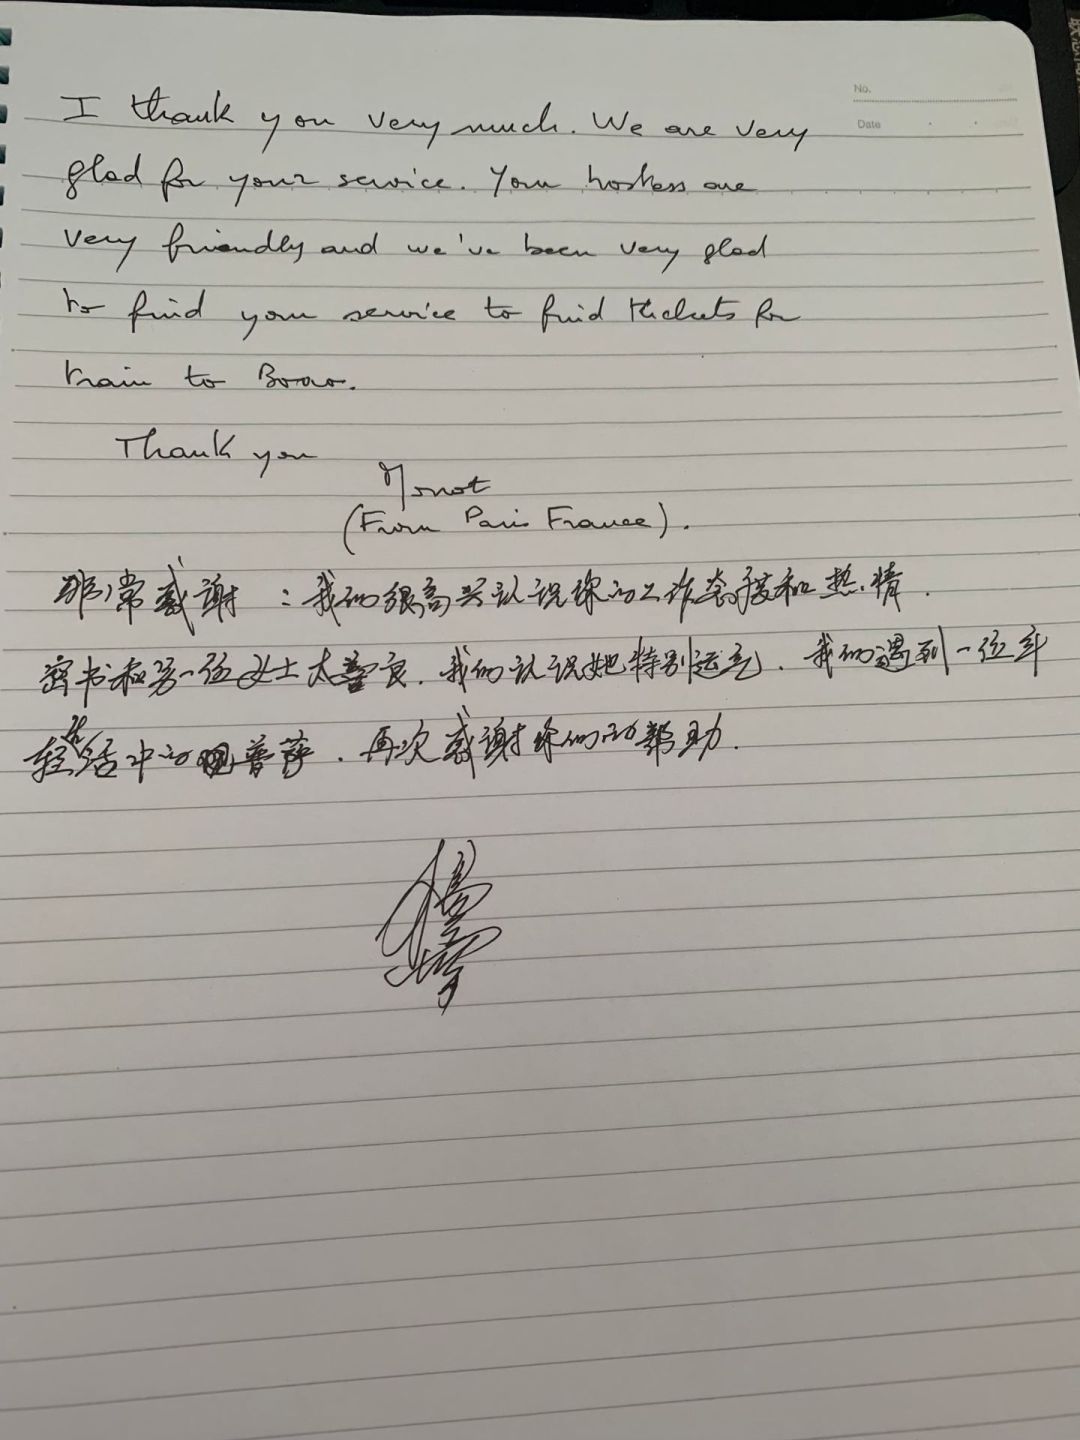 No.
Date
I thank you very much. We are very
glad for your service. Your hostess are
very friendly and we've been very glad
to find your service to find thickets for
train to Boao.
Thank you
Monot
(From Paris France).
非常感谢：我们很高兴认识你的工作态度和热情.
密书和另一位女士太善良. 我们认识她特别运气. 我们遇到一位年
轻生活中的普萨. 再次感谢你们的帮助.